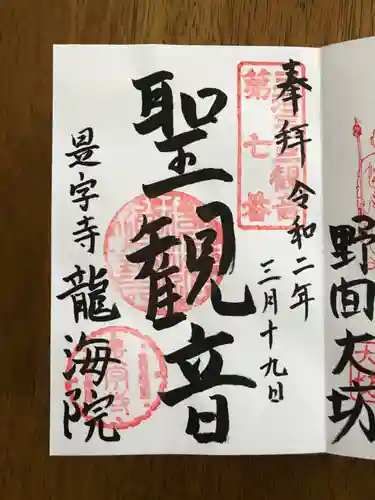 野間大坊
奉拝 令和二年
三月十九日
第七番
聖観音
是字寺 龍海院